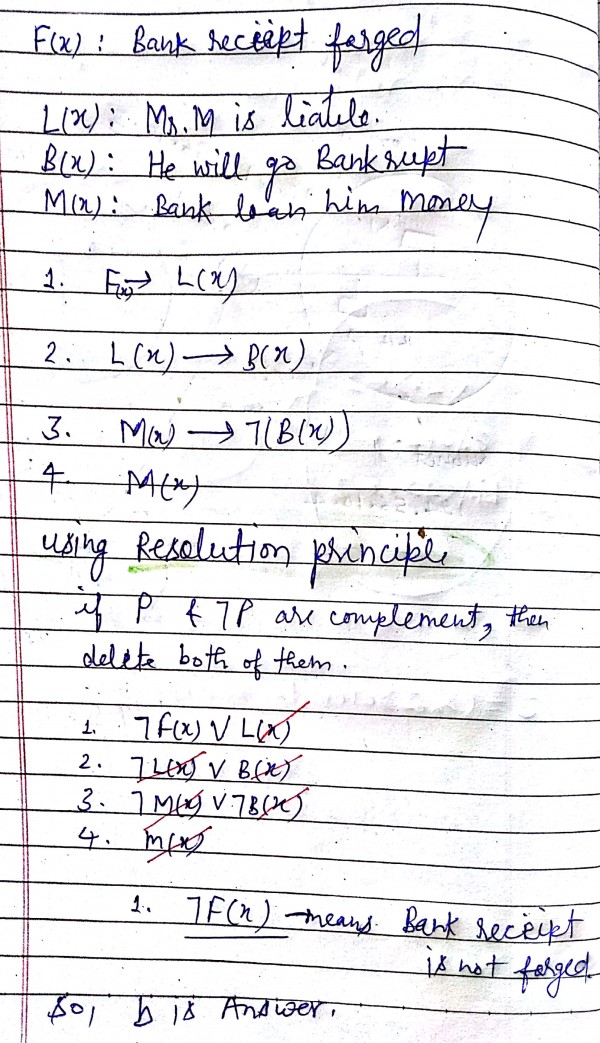 F(x) : Bank receipt forged
L(x) : Mr. M is liable.
B(x) : He will go Bankrupt
M(x) : Bank loan him Money
1. F(x) → L(x)
2. L(x) → B(x)
3. M(x) → ¬(B(x))
4. M(x)
Using Resolution principle
if P & ¬P are complement, then
delete both of them.
1. ¬F(x) ∨ L(x)
2. ¬L(x) ∨ B(x)
3. ¬M(x) ∨ ¬B(x)
4. M(x)
1. ¬F(x) → means Bank receipt
is not forged
So, b is Answer.